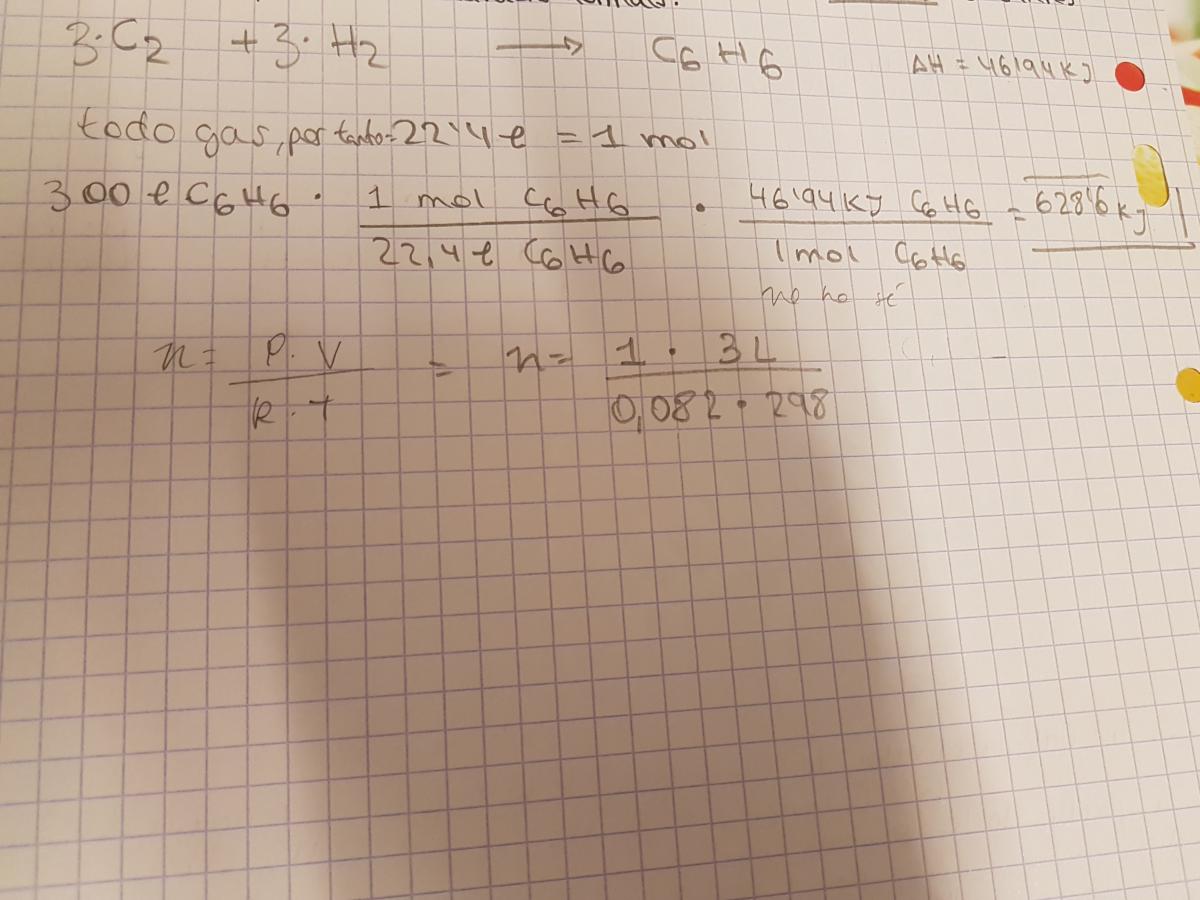 3·C2 + 3·H2 → C6H6 ΔH = 46'94 KJ
todo gas, por tanto = 22'4 l = 1 mol
300 l C6H6 · 1 mol C6H6 / 22,4 l C6H6 · 46'94 KJ C6H6 / 1 mol C6H6 = 628'6 KJ
no ho sé
n = P·V / R·T = n = 1 · 3 L / 0,082 · 298